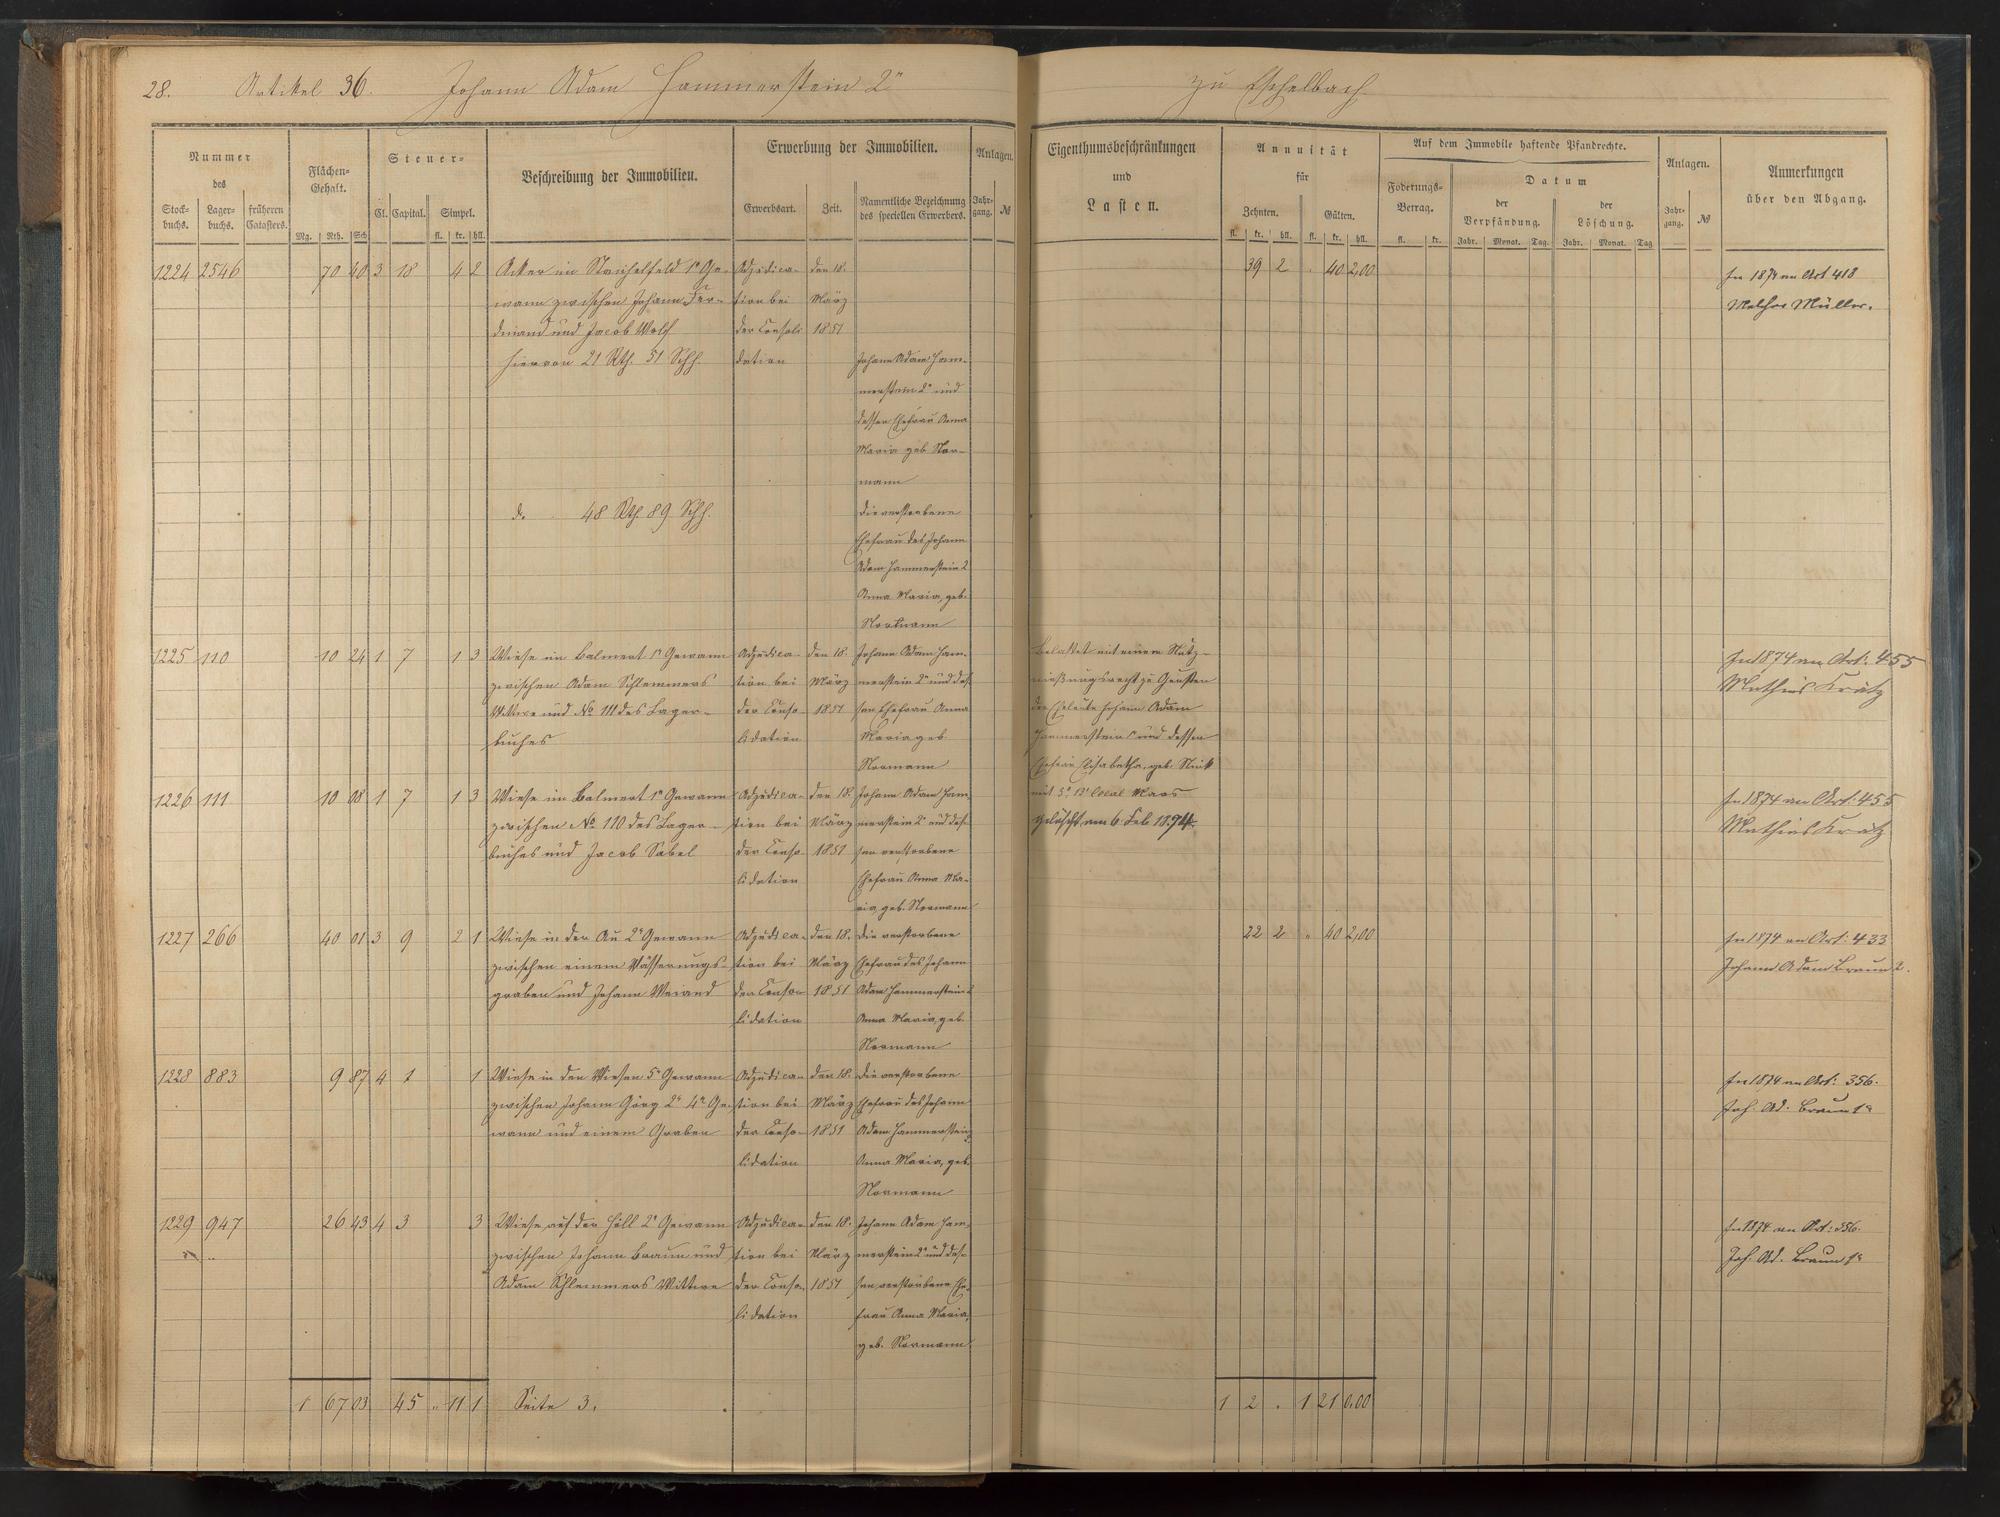 28. Artikel 36. Johann Adam Hammerstein 2r
zu Eschelbach
Nummer
des
Stock-
buchs.
Lager-
buchs.
früheren
Catasters.
Flächen-
Gehalt.
Mg. Rth. Sch
Steuer-
Cl. Capital. Simpel.
fl. kr. hll.
Beschreibung der Immobilien.
Erwerbung der Immobilien.
Erwerbsart. Zeit.
Namentliche Bezeichnung
des speciellen Erwerbers.
Anlagen.
Jahr-
gang. №
Eigenthumsbeschränkungen
und
Lasten.
Annuität
für
Zehnten. Gülten.
fl. kr. hll. fl. kr. hll.
Auf dem Immobile haftende Pfandrechte.
Foderungs-
Betrag.
fl. kr.
Datum
der
Verpfändung.
der
Löschung.
Jahr. Monat. Tag. Jahr. Monat. Tag
Anlagen.
Jahr-
gang. №
Anmerkungen
über den Abgang.
1224 2546 70 40 3 18 4 2
Acker im 1e Ge-
wann zwischen Johann Fer-
dinand und Jacob Wolf
hiervon 21 Rth. 51 Sch.
Adjudica-
tion bei
der Consoli
dation
den 18.
März
1851
Johann Adam Ham-
merstein 2r und
dessen Ehefrau Anna
Maria geb. Nor-
mann
do. 48 Rth. 89 Sch.
die verstorbene
Ehefrau des Johann
Adam Hammerstein 2
Anna Maria, geb.
Normann
39 2 . 40 2,00
In 1874 an Art 418
Melchior Müller.
1225 110 10 24 1 7 1 3
Wiese im Balmert 1e Gewann
zwischen Adam Schlemmers
Wittwe und No 111 des Lager-
buches
Adjudica-
tion bei
der Conso-
lidation
den 18.
März
1851
Johann Adam Ham-
merstein 2r und des-
sen Ehefrau Anna
Maria geb.
Normann
Belastet mit einem Nutz-
nießungsrecht zu Gunsten
der Eheleute Johann Adam
Hammerstein und dessen
Ehefrau Elisabetha, geb.
gelöscht am 6. Feb. 1874.
In 1874 an Art: 455
Mathias Kratz
1226 111 10 08 1 7 1 3
Wiese im Balmert 1e Gewann
zwischen No 110 des Lager-
buches und Jacob Sabel
Adjudica-
tion bei
der Conso-
lidation
den 18.
März
1851
Johann Adam Ham-
merstein 2r und des-
sen verstorbene
Ehefrau Anna Ma-
ria, geb. Normann
In 1874 an Art: 455
Mathias Kratz
1227 266 40 01 3 9 2 1
Wiese in der Au 2e Gewann
zwischen einem Wässerungs-
graben und Johann Weiand
Adjudica-
tion bei
der Conso-
lidation
den 18.
März
1851
die verstorbene
Ehefrau des Johann
Adam Hammerstein 2
Anna Maria, geb.
Normann
22 2 " 40 2,00
In 1874 an Art: 433
Johann Adam Braun 2.
1228 883 9 87 4 1 1
Wiese in den Wiesen 5e Gewann
zwischen Johann Görg 2r 4e Ge-
wann und einem Graben
Adjudica-
tion bei
der Conso-
lidation
den 18.
März
1851
die verstorbene
Ehefrau des Johann
Adam Hammerstein 2
Anna Maria, geb.
Normann
In 1874 an Art: 356.
Joh. Ad. Braun 1r
1229 947 26 43 4 3 3
Wiese auf der Höll 2e Gewann
zwischen Johann Braun und
Adam Schlemmers Wittwe
Adjudica-
tion bei
der Conso-
lidation
den 18.
März
1851
Johann Adam Ham-
merstein 2r und des-
sen verstorbene Ehe-
frau Anna Maria,
geb. Normann
In 1874 an Art: 356.
Joh. Ad. Braun 1r
1 67 03 45 " 11 1 Seite 3.
1 2 . 1 21 0,00